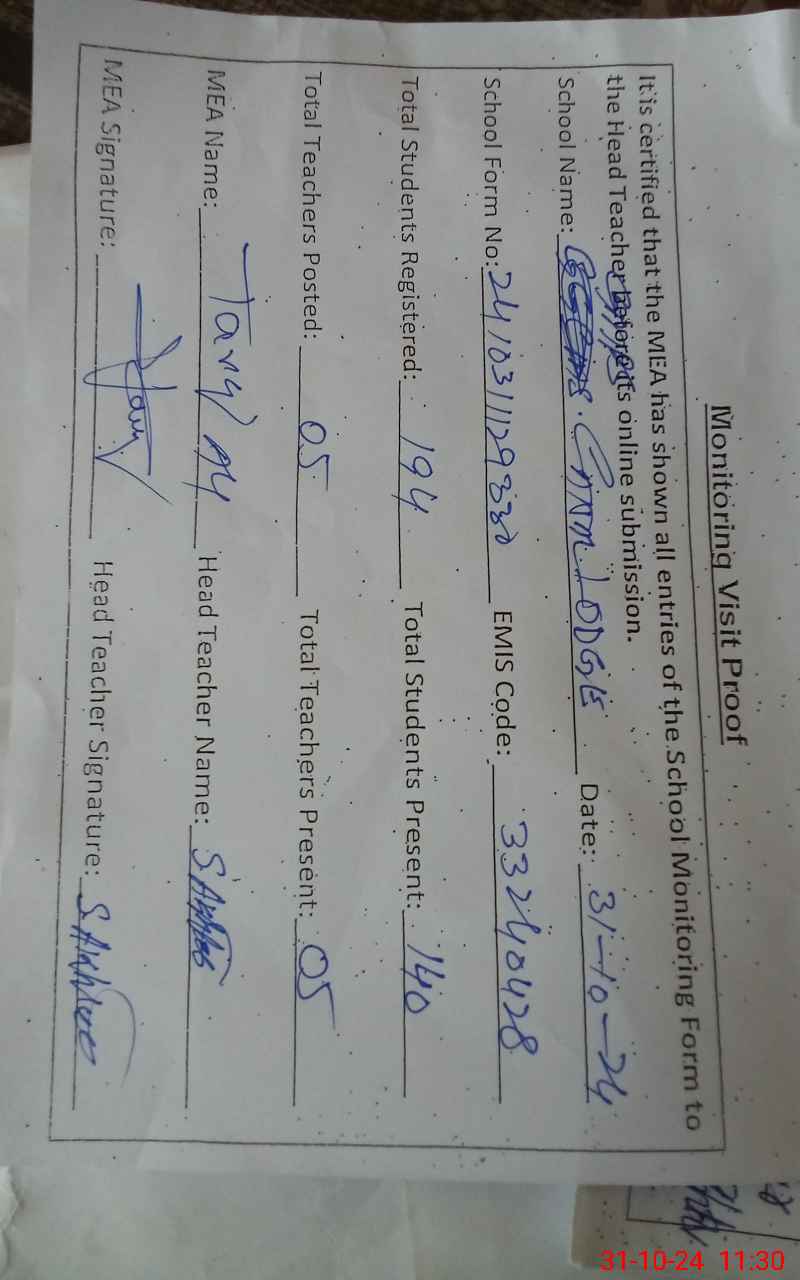 Monitoring Visit Proof
It is certified that the MEA has shown all entries of the School Monitoring Form to
the Head Teacher before its online submission.
School Name: LODGE Date: 31-10-24
School Form No: EMIS Code: 33240428
Total Students Registered: 194 Total Students Present: 140
Total Teachers Posted: 05 Total Teachers Present: 05
MEA Name: Head Teacher Name: S.
MEA Signature: Head Teacher Signature: S.
31-10-24 11:30